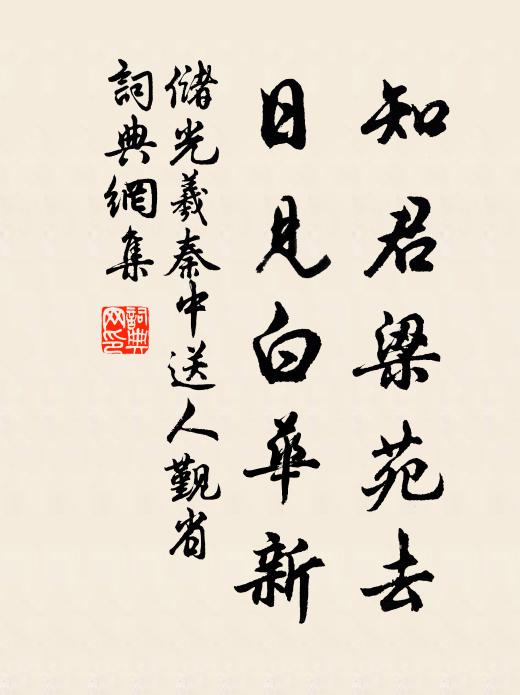 知君梁苑去
日見白華新
儲光羲秦中送人覲省
詞典網集
詞典网印